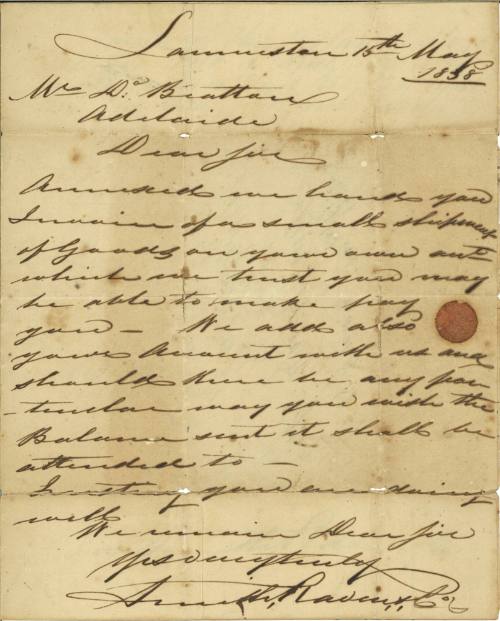 Launceston 15th May
1838
Mr Dd Bratton
Adelaide
Dear Sir
Annexed we hand you
Invoice of a small shipment
of Goods on your own act
which we trust you may
be able to make pay
you – We add also
your Account with us and
should there be any par
-ticular way you wish the
Balance sent it shall be
attended to –
Trusting you are doing
well
We remain Dear Sir
Yrs very truly
Raven & Co